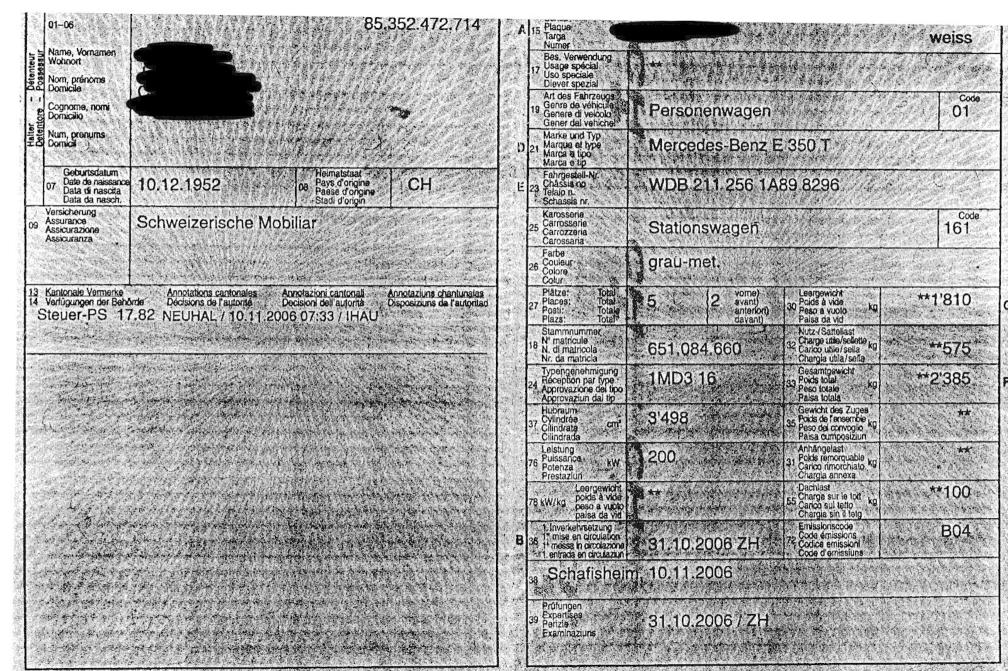 01-06
85.352.472.714
Halter - Détenteur
Detentore - Possessur
Name, Vornamen
Wohnort
Nom, prénoms
Domicile
Cognome, nomi
Domicilio
Num, prenums
Domicil
07
Geburtsdatum
Date de naissance
Data di nascita
Data da nasch.
10.12.1952
08
Heimatstaat
Pays d'origine
Paese d'origine
Stadi d'origin
CH
09
Versicherung
Assurance
Assicurazione
Assicuranza
Schweizerische Mobiliar
13 Kantonale Vermerke Annotations cantonales Annotazioni cantonali Annotaziuns chantunalas
14 Verfügungen der Behörde Décisions de l'autorité Decisioni dell'autorità Disposiziuns da l'autoritad
Steuer-PS 17.82 NEUHAL / 10.11.2006 07:33 / IHAU
A 15
Plaque
Targa
Numer
weiss
17
Bes. Verwendung
Usage spécial
Uso speciale
Diever spezial
**
19
Art des Fahrzeugs
Genre de véhicule
Genere di veicolo
Gener dal vehichel
Personenwagen
Code
01
D 21
Marke und Typ
Marque et type
Marca e tipo
Marca e tip
Mercedes-Benz E 350 T
E 23
Fahrgestell-Nr.
Châssis no
Telaio n.
Schassis nr.
WDB 211 256 1A89 8296
25
Karosserie
Carrosserie
Carrozzeria
Carossaria
Stationswagen
Code
161
26
Farbe
Couleur
Colore
Colur
grau-met.
27
Plätze: Total
Places: Total
Posti: Totale
Plazs: Total
5
2
vorne)
avant)
anteriori)
davant)
30
Leergewicht
Poids à vide
Peso a vuoto
Paisa da vid
kg
**1'810
18
Stammnummer
N° matricule
N. di matricola
Nr. da matricla
651.084.660
32
Nutz-/Sattellast
Charge utile/sellette
Carico utile/sella
Chargia utila/sella
kg
**575
24
Typengenehmigung
Réception par type
Approvazione del tipo
Approvaziun dal tip
1MD3 16
33
Gesamtgewicht
Poids total
Peso totale
Paisa totala
kg
**2'385
37
Hubraum
Cylindrée
Cilindrata
Cilindrada
cm³
3'498
35
Gewicht des Zuges
Poids de l'ensemble
Peso del convoglio
Paisa cumposiziun
kg
**
76
Leistung
Puissance
Potenza
Prestaziun
kW
200
31
Anhängelast
Poids remorquable
Carico rimorchiato
Chargia annexa
kg
**
78 kW/kg
Leergewicht
poids à vide
peso a vuoto
paisa da vid
**
55
Dachlast
Charge sur le toit
Carico sul tetto
Chargia sin il tetg
kg
**100
B 36
1. Inverkehrsetzung
1re mise en circulation
1a messa in circolazione
1. entrada en circulaziun
31.10.2006 ZH
72
Emissionscode
Code émissions
Codice emissioni
Code d'emissiuns
B04
38
Schafisheim, 10.11.2006
39
Prüfungen
Expertises
Perizie
Examinaziuns
31.10.2006 / ZH